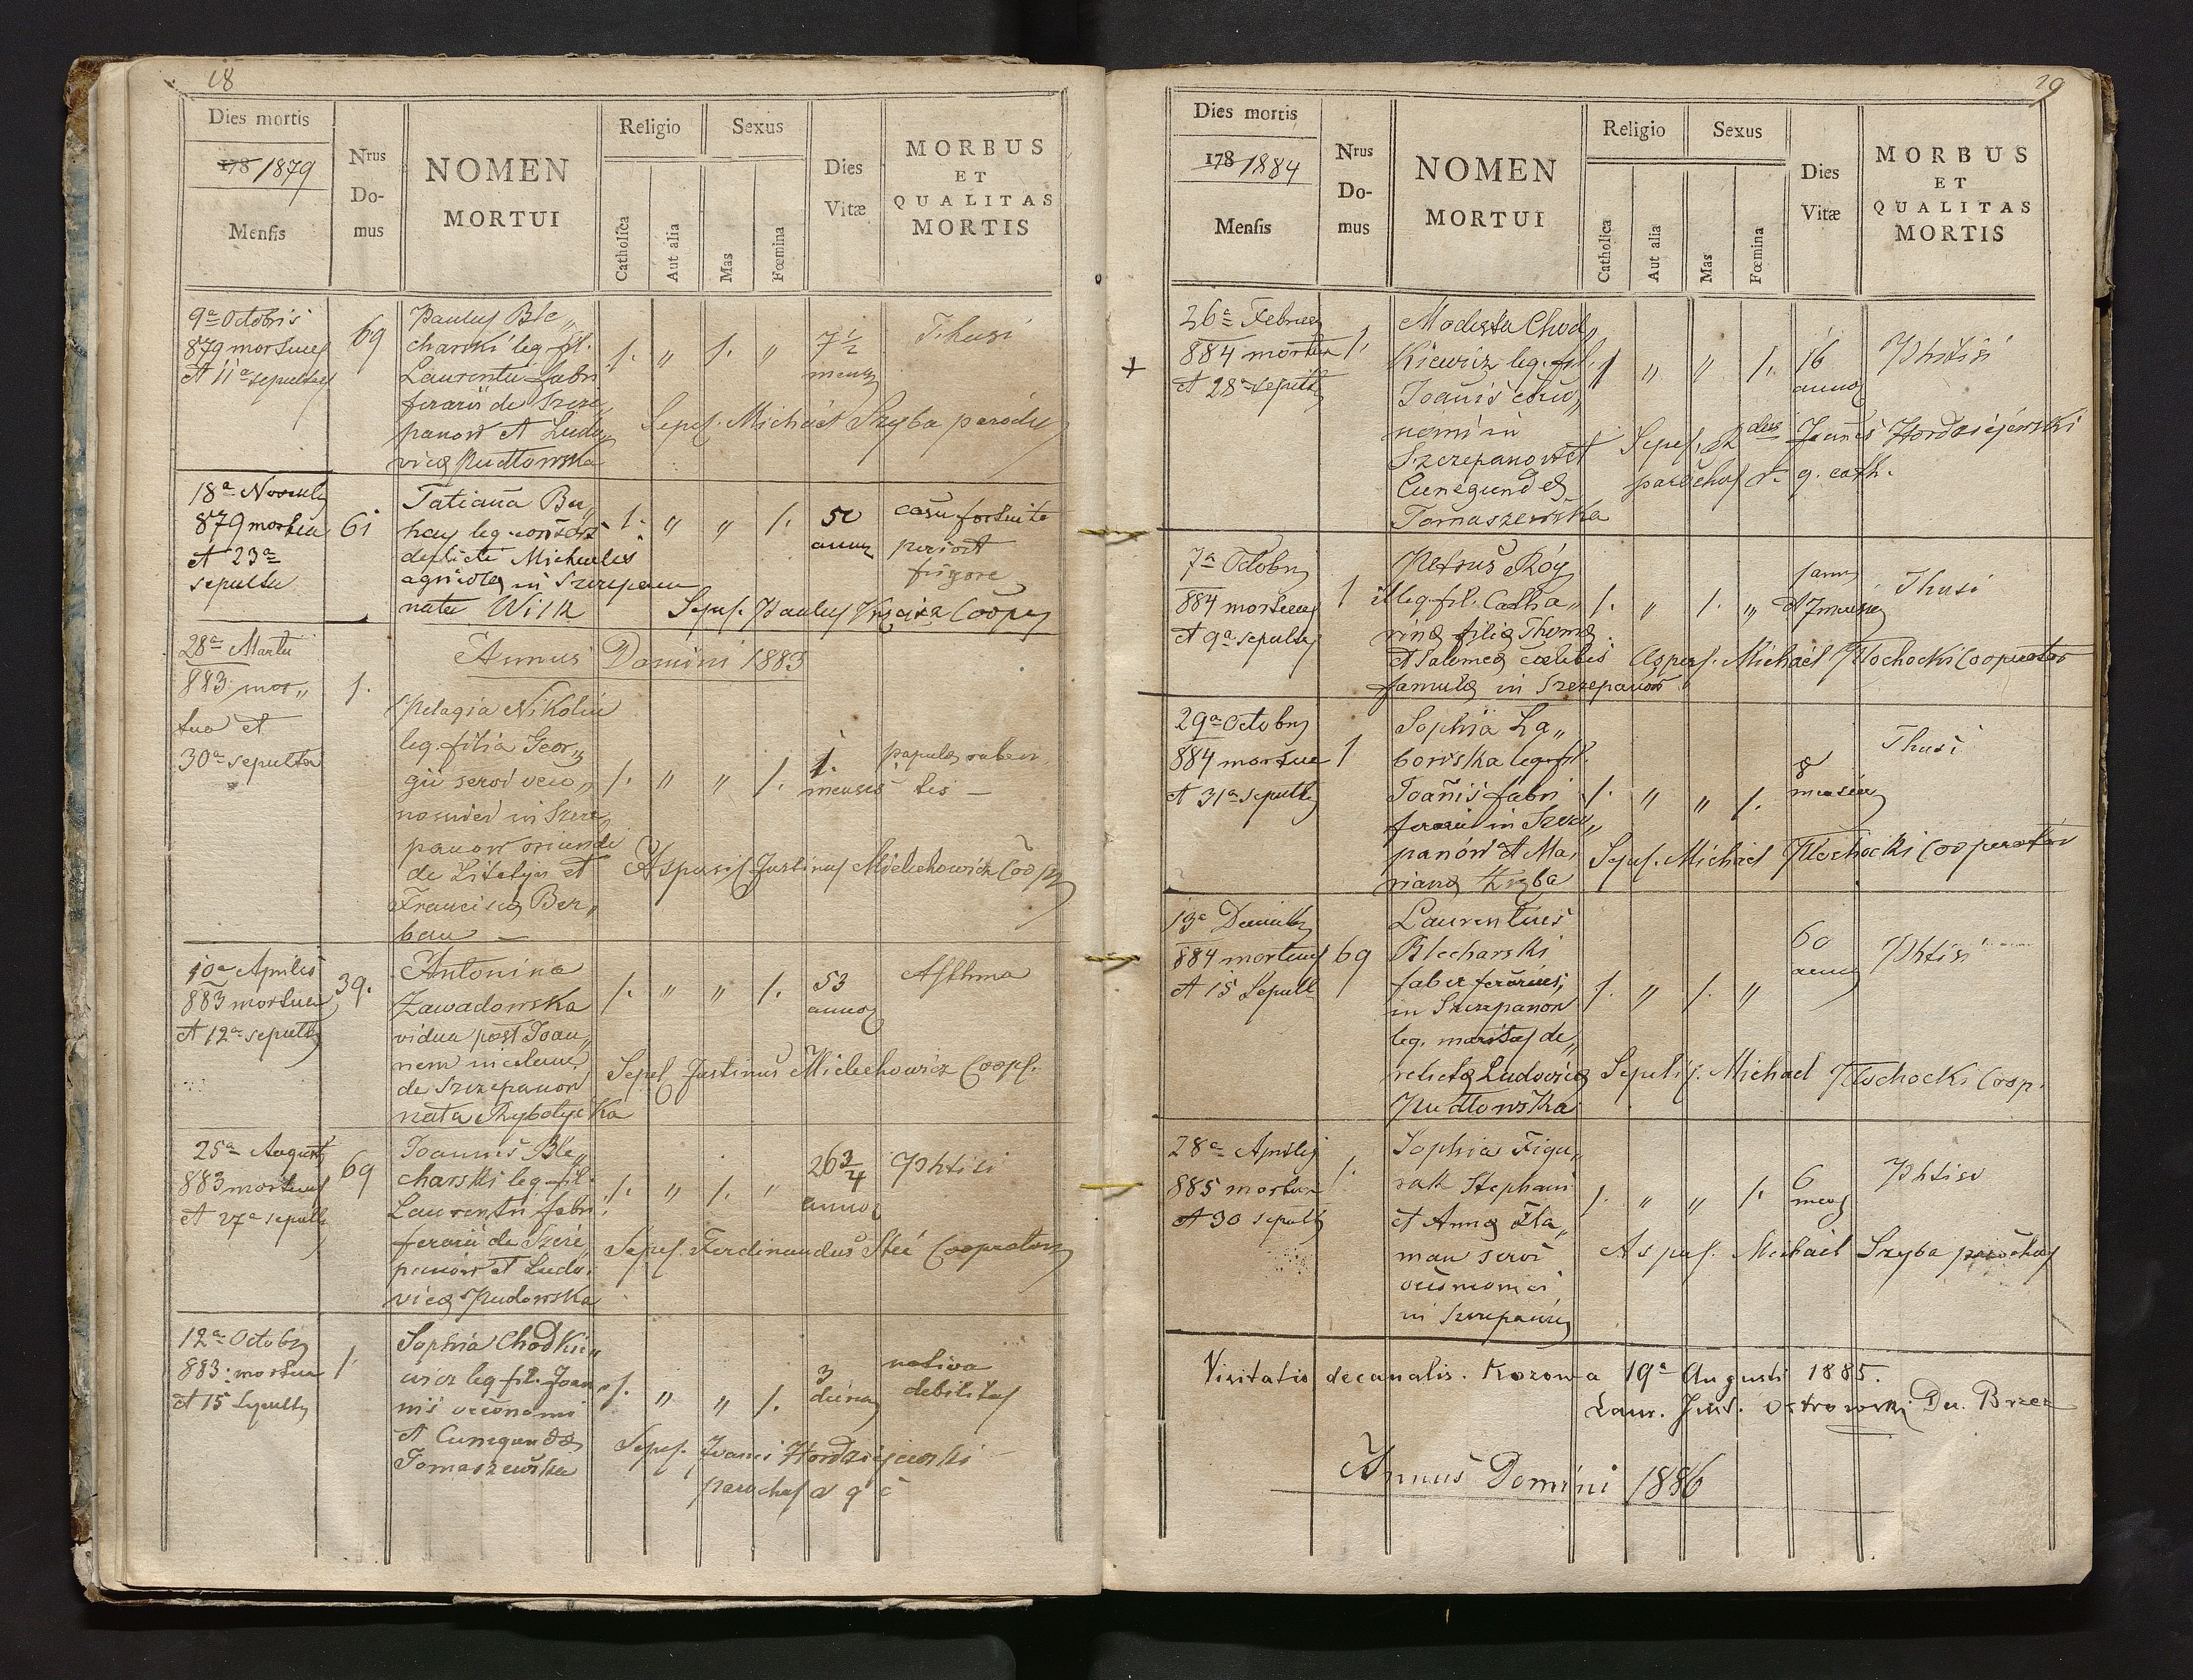 18
Dies mortis
178/1879
Mensis
Nrus
Do-
mus
NOMEN
MORTUI
Religio
Catholica
Aut alia
Sexus
Mas
Fœmina
Dies
Vitæ
MORBUS
ET
QUALITAS
MORTIS
9a Octobris
879 mortuus
et 11a sepultus
69
Paulus Ble„
charski leg. fil.
Laurentii fabri
ferarii de Szcze„
panow et Ludo„
vica Rudtowska
1. „ 1. „
7 1/2
mensis
Thusi
Sepel. Michael Szyba parochus
18a Novemb
879 mortua
et 23a
sepulta
61
Tatiana Bu„
hay leg. consors
defuncti Michaelis
agricola in Szczepanow
nata Wilk
1. „ „ 1.
50
annor
casu fortuito
periort
frigore
Sepel. Paulus Coope
28a Martii
883 mor„
tua et
30a sepulta
1.
Annus Domini 1883
Pelagia Nikolin
leg. filia Geor„
gii servi oeco„
nomici in Szcze„
panow oriundi
de Litatyn et
Francisca Ber„
ban —
1. „ „ 1.
1.
mensis
papula ruben
tis —
Aspersit Justinus Mielechowicz Coop
10a Aprilis
883 mortua
et 12a sepulta
39.
Antonina
Zawadowska
vidua post Joan„
nem incolam
de Szczepanow
nata Rybotycka
1. „ „ 1.
53
annor
Asthma
Sepel. Justinus Mielechowicz Coop.
25a August
883 mortuus
et 27a sepult
69
Joannes Ble„
charski leg. fil.
Laurentii fabri
ferarii de Szcze„
panow et Ludo„
vica Rudowska
1. „ 1. „
26 3/4
annor
Phtisi
Sepel. Ferdinandus Steć Cooprator
12a Octobr
883 mortua
et 15 Sepulta
1.
Sophia Chodkie„
wicz leg. fil. Joan„
nis oeconomi
et Cunegunda
Tomaszewska
1. „ „ 1.
3
dierum
nativa
debilitas
Sepel. Joannes Hordziejewski
parochus r g c
19
Dies mortis
178/1884
Mensis
Nrus
Do-
mus
NOMEN
MORTUI
Religio
Catholica
Aut alia
Sexus
Mas
Fœmina
Dies
Vitæ
MORBUS
ET
QUALITAS
MORTIS
+
26a Februar
884 mortua
et 28a sepulta
1.
Modesta Chod„
kiewicz leg. fil.
Joanis oeco„
nomi in
Szczepanow et
Cunegunda
Tomaszewska
1 „ „ 1.
16
annor
Phtisi
Sepel. Rdus Joanes Hordziejewski
parochus r. g. cath.
7a Octobr
884 mortuus
et 9a sepultus
1
Petrus Róg
illeg. fil. Catha„
rina filia Thoma
et Salomea caelibis
famula in Szczepanow
1. „ 1. „
1 ann
et 7 mensi
Thusi
Aspers. Michael Tłochocki Cooperator
29a Octobr
884 mortua
et 31a sepulta
1
Sophia La„
borska leg. fil.
Joannis fabri
ferarii in Szcze„
panów et Ma„
riana Ziyba
1. „ „ 1.
8
mensiu
Thusi
Sepel. Michael Tłochocki Cooperator
13a Decemb
884 mortuus
et 15 Sepult
69
Laurentius
Blecharski
faber ferarius
in Szczepanow
leg. maritus de„
relicta Ludovica
Rudtowska
1. „ 1. „
60
annor
Phtisi
Sepeli. Michael Tłochocki Coop.
28a Aprilis
885 mortua
et 30 sepulta
1.
Sophia Figu„
rak Stephani
et Anna Ha„
man servi
oeconomici
in Szczepanow
1. „ „ 1.
6
mens
Phtisi
Aspers. Michael Szyba parochus
Visitatio decanalis. Kozowa 19a Augusti 1885.
Laur. Just. Ostrowski De. Brzez
Annus Domini 1886